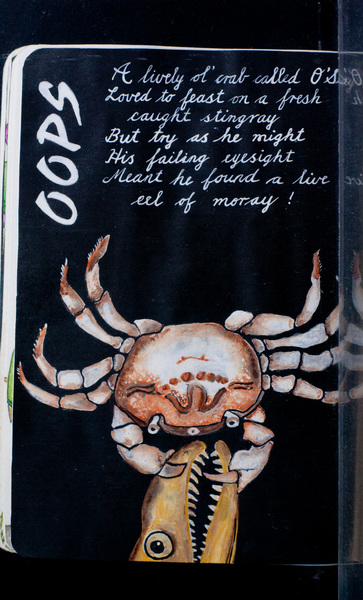 OOPS
A lively ol' crab called
Loved to feast on a fresh
caught stingray
But try as he might
His failing eyesight
Meant he found a live
eel of moray !